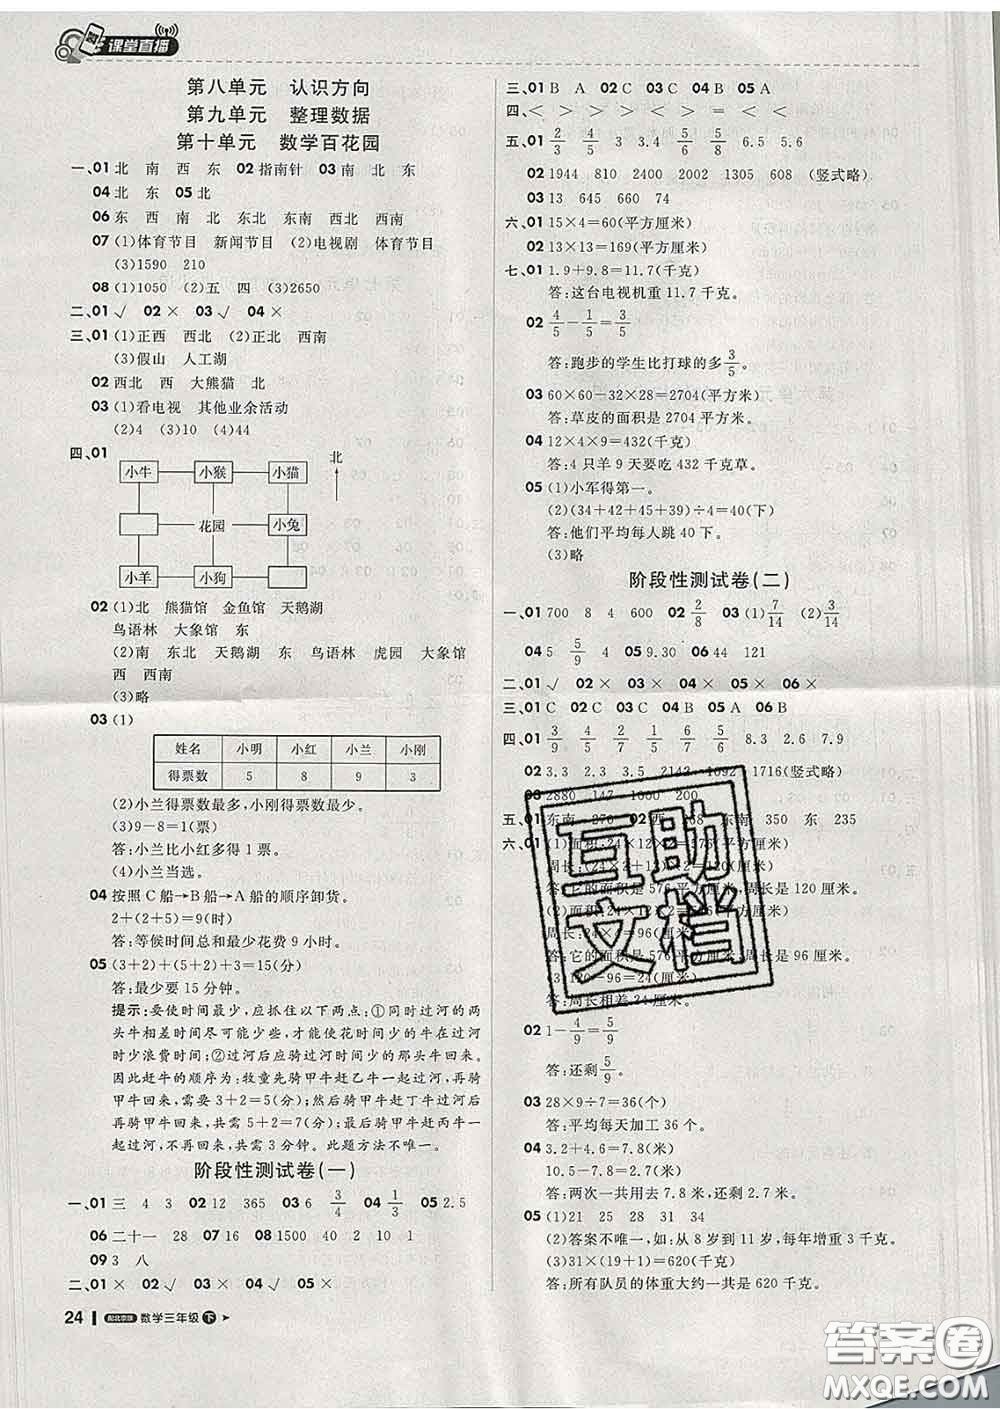 课堂直播
第八单元 认识方向
第九单元 整理数据
第十单元 数学百花园
一、01 北 南 西 东 02 指南针 03 南 北 东
04 北 东 05 北
06 东 西 南 北 东北 东南 西北 西南
07 (1)体育节目 新闻节目 (2)电视剧 体育节目
(3)1590 210
08 (1)1050 (2)五 四 (3)2650
二、01 √ 02 × 03 √ 04 ×
三、01 (1)正西 西北 (2)正北 西南
(3)假山 人工湖
02 西北 西 大熊猫 北
03 (1)看电视 其他业余活动
(2)4 (3)10 (4)44
四、01
北
小牛 小猴 小猫
花园 小兔
小羊 小狗
02 (1)北 熊猫馆 金鱼馆 天鹅湖
鸟语林 大象馆 东
(2)南 东北 天鹅湖 东 鸟语林 虎园 大象馆
西 西南
(3)略
03 (1)
姓名 小明 小红 小兰 小刚
得票数 5 8 9 3
(2)小兰得票数最多,小刚得票数最少。
(3)9-8=1(票)
答:小兰比小红多得 1 票。
(4)小兰当选。
04 按照 C 船→B 船→A 船的顺序卸货。
2+(2+5)=9(时)
答:等候时间总和最少花费 9 小时。
05 (3+2)+(5+2)+3=15(分)
答:最少要 15 分钟。
提示:要使时间最少,应抓住以下两点:①同时过河的两
头牛相差时间尽可能少些,才能使花时间少的牛在过河
时少浪费时间;②过河后应骑过河时间少的那头牛回来。
因此赶牛的顺序为:牧童先骑甲牛赶乙牛一起过河,再骑
甲牛回来,需要 3+2=5(分);然后骑甲牛赶丁牛过河后
再骑甲牛回来,共需 5+2=7(分);最后骑甲牛赶丙牛一
起过河,不再回来,共需 3 分钟。此题方法不唯一。
阶段性测试卷(一)
一、01 三 4 3 02 12 365 03 6 3/4 04 1/3 05 2.5
06 二十一 28 07 16 08 1500 40 2 10 1
09 3 八
二、01 × 02 √ 03 × 04 √ 05 ×
24 数学三年级 下
三、01 B A 02 C 03 C 04 B 05 A
四、< > < > > = < <
五、01 2/3 4/5 3 3.4 5/6 5/8 6.5 5.6
02 1944 810 2400 2002 1305 608 (竖式略)
03 13 645 660 74
六、01 15×4=60(平方厘米)
02 13×13=169(平方厘米)
七、01 1.9+9.8=11.7(千克)
答:这台电视机重 11.7 千克。
02 4/5-1/5=3/5
答:跑步的学生比打球的多3/5。
03 60×60-32×28=2704(平方米)
答:草皮的面积是 2704 平方米。
04 12×4×9=432(千克)
答:4 只羊 9 天要吃 432 千克草。
05 (1)小军得第一。
(2)(34+42+45+39)÷4=40(下)
答:他们平均每人跳 40 下。
(3)略
阶段性测试卷(二)
一、01 700 8 4 600 02 2/8 03 (1)7/14 (2)3/14
04 5 5/9 4 05 9.30 06 44 121
二、01 √ 02 × 03 × 04 × 05 × 06 ×
三、01 C 02 C 03 C 04 B 05 A 06 B
四、01 3/9 4/5 2/7 1/5 6/7 5/6 8.3 2.6 7.9
02 3.3 2.6 5.8 2142 1092 1716(竖式略)
03 2880 147 1000 200
五、01 东南 270 02 西 东南 350 东 235
六、01 (1)面积:24×12×2=576(平方厘米)
周长:(24×2+12)×2=120(厘米)
答:它的面积是 576 平方厘米,周长是 120 厘米。
(2)面积:24×12×2=576(平方厘米)
周长:24×4=96(厘米)
答:它的面积是 576 平方厘米,周长是 96 厘米。
(3)120-96=24(厘米)
答:周长相差 24 厘米。
02 1-4/9=5/9
答:还剩5/9。
03 28×9÷7=36(个)
答:平均每天加工 36 个。
04 3.2+4.6=7.8(米)
10.5-7.8=2.7(米)
答:两次一共用去 7.8 米,还剩 2.7 米。
05 (1)21 25 28 31 34
(2)答案不唯一,如:从 8 岁到 11 岁,每年增重 3 千克。
(3)31×(19+1)=620(千克)
答:所有队员的体重大约一共是 620 千克。
互助文档
答案圈
MXQE.COM